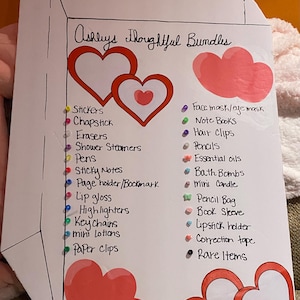 Ashley's Thoughtful Bundles
Stickers
Chapstick
Erasers
Shower Steamers
Pens
Sticky Notes
Page holder/Bookmark
Lip gloss
Highlighters
Key chains
mini lotions
Paper clips
Face mask/eye mask
Note Books
Hair Clips
Pencils
Essential oils
Bath Bombs
mini candle
Pencil Bag
Book Sleeve
Lipstick holder
Correction tape
Rare Items